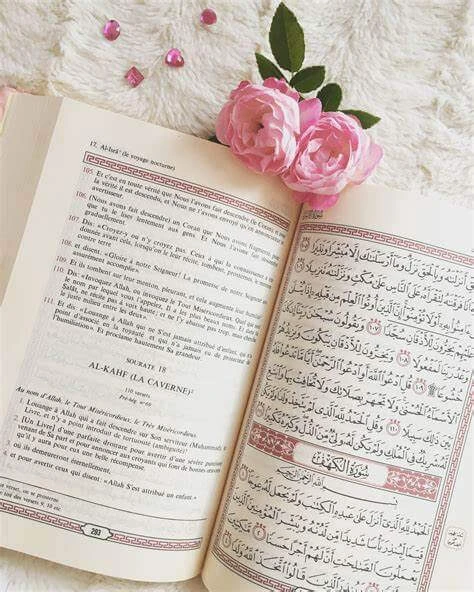 17. Al-Isrâ' (le voyage nocturne)
105. Et c'est en toute vérité que Nous l'avons fait descendre (le Coran), et avec
la vérité il est descendu, et Nous ne t'avons envoyé qu'en annonciateur et
avertisseur
106. (Nous avons fait descendre) un Coran que Nous avons fragmenté, pour
que tu le lises lentement aux gens. Et Nous l'avons fait descendre
graduellement
107. Dis: «Croyez-y ou n'y croyez pas. Ceux à qui la connaissance a été
donnée avant cela, lorsqu'on le leur récite, tombent, prosternés, le menton
contre terre
108. et disent: «Gloire à notre Seigneur! La promesse de notre Seigneur
109. Et ils tombent sur leur menton, pleurant, et cela augmente leur humilité
110. Dis: «Invoquez Allah, ou invoquez le Tout Miséricordieux. Quel que soit
le nom par lequel vous l'appelez, Il a les plus beaux noms. Et dans ta
Salât, ne récite pas à voix haute; et ne l'y abaisse pas trop, mais cherche
le juste milieu entre les deux»
111. Et dis: «Louange à Allah qui ne S'est jamais attribué d'enfant, qui n'a
point d'associé en la royauté et qui n'a jamais eu de protecteur de
l'humiliation». Et proclame hautement Sa grandeur.
SOURATE 18
AL-KAHF (LA CAVERNE)
110 versets
Pré-hég. n°69
Au nom d'Allah, le Tout Miséricordieux, le Très Miséricordieux.
1. Louange à Allah qui a fait descendre sur Son serviteur (Muhammad) le
Livre, et n'y a point introduit de tortuosité (ambiguïté)!
2. [Un Livre] d'une parfaite droiture pour avertir d'une sévère punition
venant de Sa part et pour annoncer aux croyants qui font de bonnes œuvres
qu'il y aura pour eux une belle récompense
où ils demeureront éternellement,
4. et pour avertir ceux qui disent: «Allah S'est attribué un enfant.»
293
وَبِالْحَقِّ نَزَلَ وَمَا أَرْسَلْنَاكَ إِلَّا مُبَشِّرًا وَنَذِيرًا
لِتَقْرَأَهُ عَلَى النَّاسِ عَلَى مُكْثٍ وَنَزَّلْنَاهُ تَنزِيلًا
إِنَّ الَّذِينَ أُوتُوا الْعِلْمَ مِن قَبْلِهِ إِذَا
يَخِرُّونَ لِلْأَذْقَانِ سُجَّدًا ١٠٧ وَيَقُولُونَ سُبْحَانَ رَبِّنَا
رَبِّنَا لَمَفْعُولًا وَيَخِرُّونَ لِلْأَذْقَانِ يَبْكُونَ وَيَزِيدُهُمْ
قُلِ ادْعُوا اللَّهَ أَوِ ادْعُوا الرَّحْمَنَ أَيًّا مَّا تَدْعُوا فَلَهُ
الْأَسْمَاءُ الْحُسْنَى وَلَا تَجْهَرْ بِصَلَاتِكَ وَلَا تُخَافِتْ بِهَا وَابْتَغِ
بَيْنَ ذَلِكَ سَبِيلًا ١١٠ وَقُلِ الْحَمْدُ لِلَّهِ الَّذِي لَمْ يَتَّخِذْ وَلَدًا وَلَمْ يَكُن لَّهُ
شَرِيكٌ فِي الْمُلْكِ وَلَمْ يَكُن لَّهُ وَلِيٌّ مِّنَ الذُّلِّ وَكَبِّرْهُ تَكْبِيرًا
سُورَةُ الْكَهْفِ
الْحَمْدُ لِلَّهِ الَّذِي أَنزَلَ عَلَى عَبْدِهِ الْكِتَابَ وَلَمْ يَجْعَل لَّهُ عِوَجًا
قَيِّمًا لِّيُنذِرَ بَأْسًا شَدِيدًا مِّن لَّدُنْهُ وَيُبَشِّرَ الْمُؤْمِنِينَ الَّذِينَ
يَعْمَلُونَ الصَّالِحَاتِ أَنَّ لَهُمْ أَجْرًا حَسَنًا ٢ مَّاكِثِينَ
فِيهِ أَبَدًا ٣ وَيُنذِرَ الَّذِينَ قَالُوا اتَّخَذَ اللَّهُ وَلَدًا